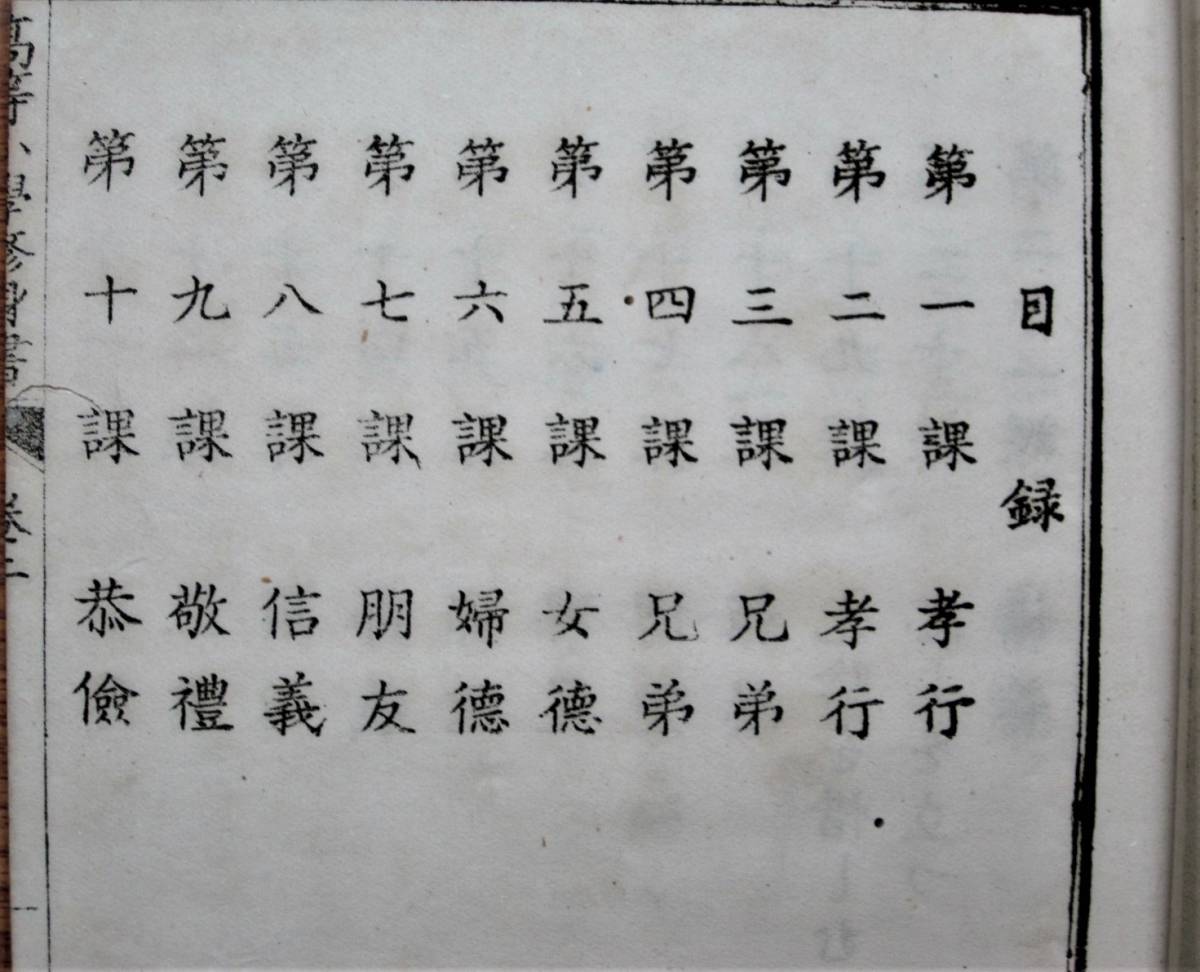 目録
第一課 孝行
第二課 孝行
第三課 兄弟
第四課 兄弟
第五課 女德
第六課 婦德
第七課 朋友
第八課 信義
第九課 敬禮
第十課 恭儉
高等小學修身書 卷二 一